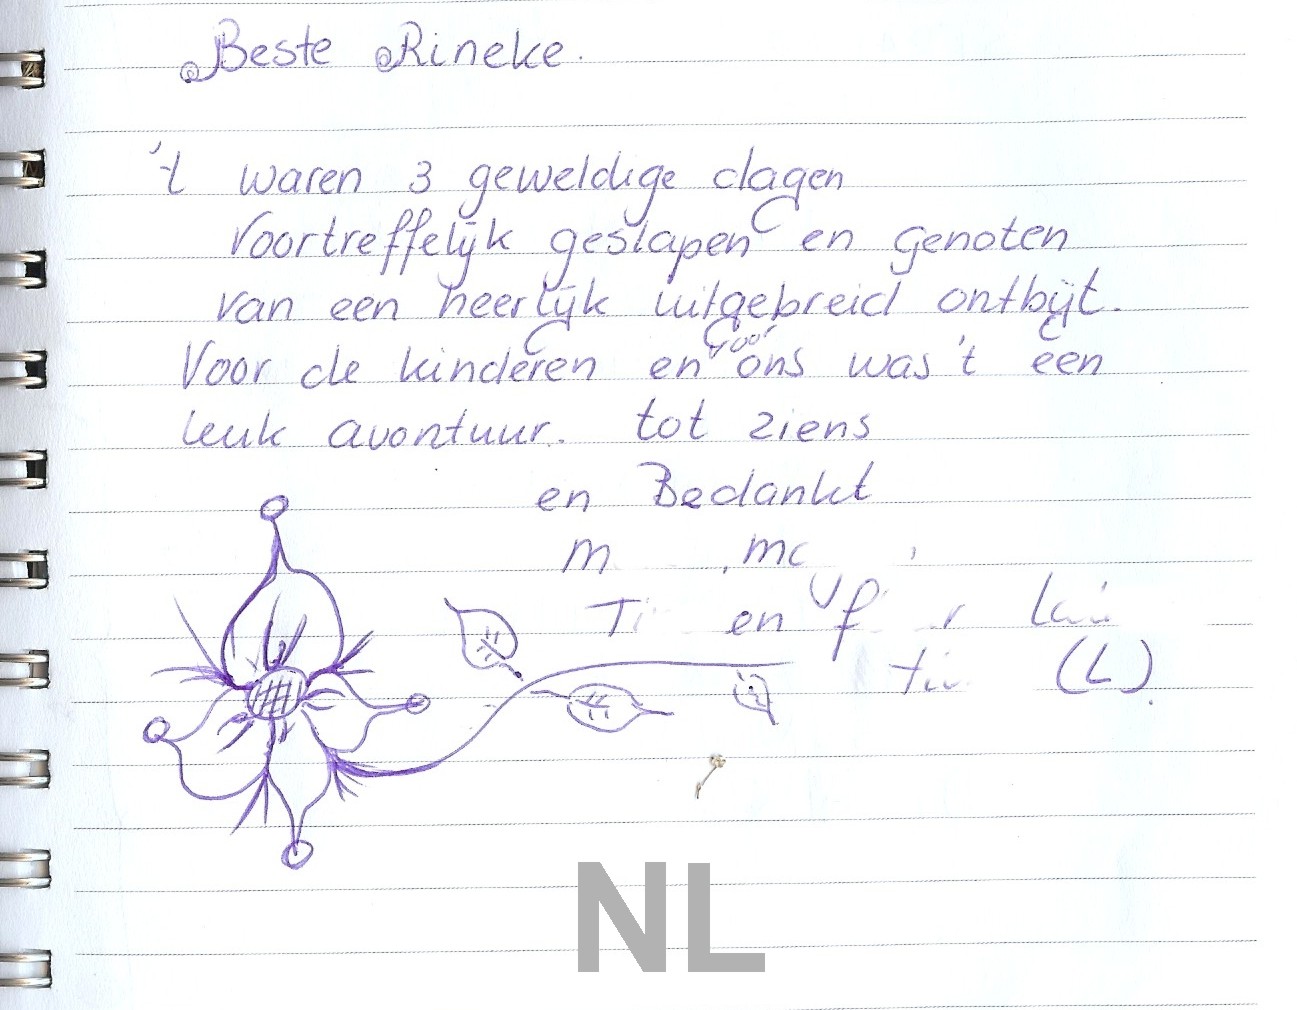 Beste Rineke.
't waren 3 geweldige dagen
voortreffelijk geslapen en genoten
van een heerlijk uitgebreid ontbijt.
Voor de kinderen en voor ons was 't een
leuk avontuur. tot ziens
en Bedankt
en
(L).
NL